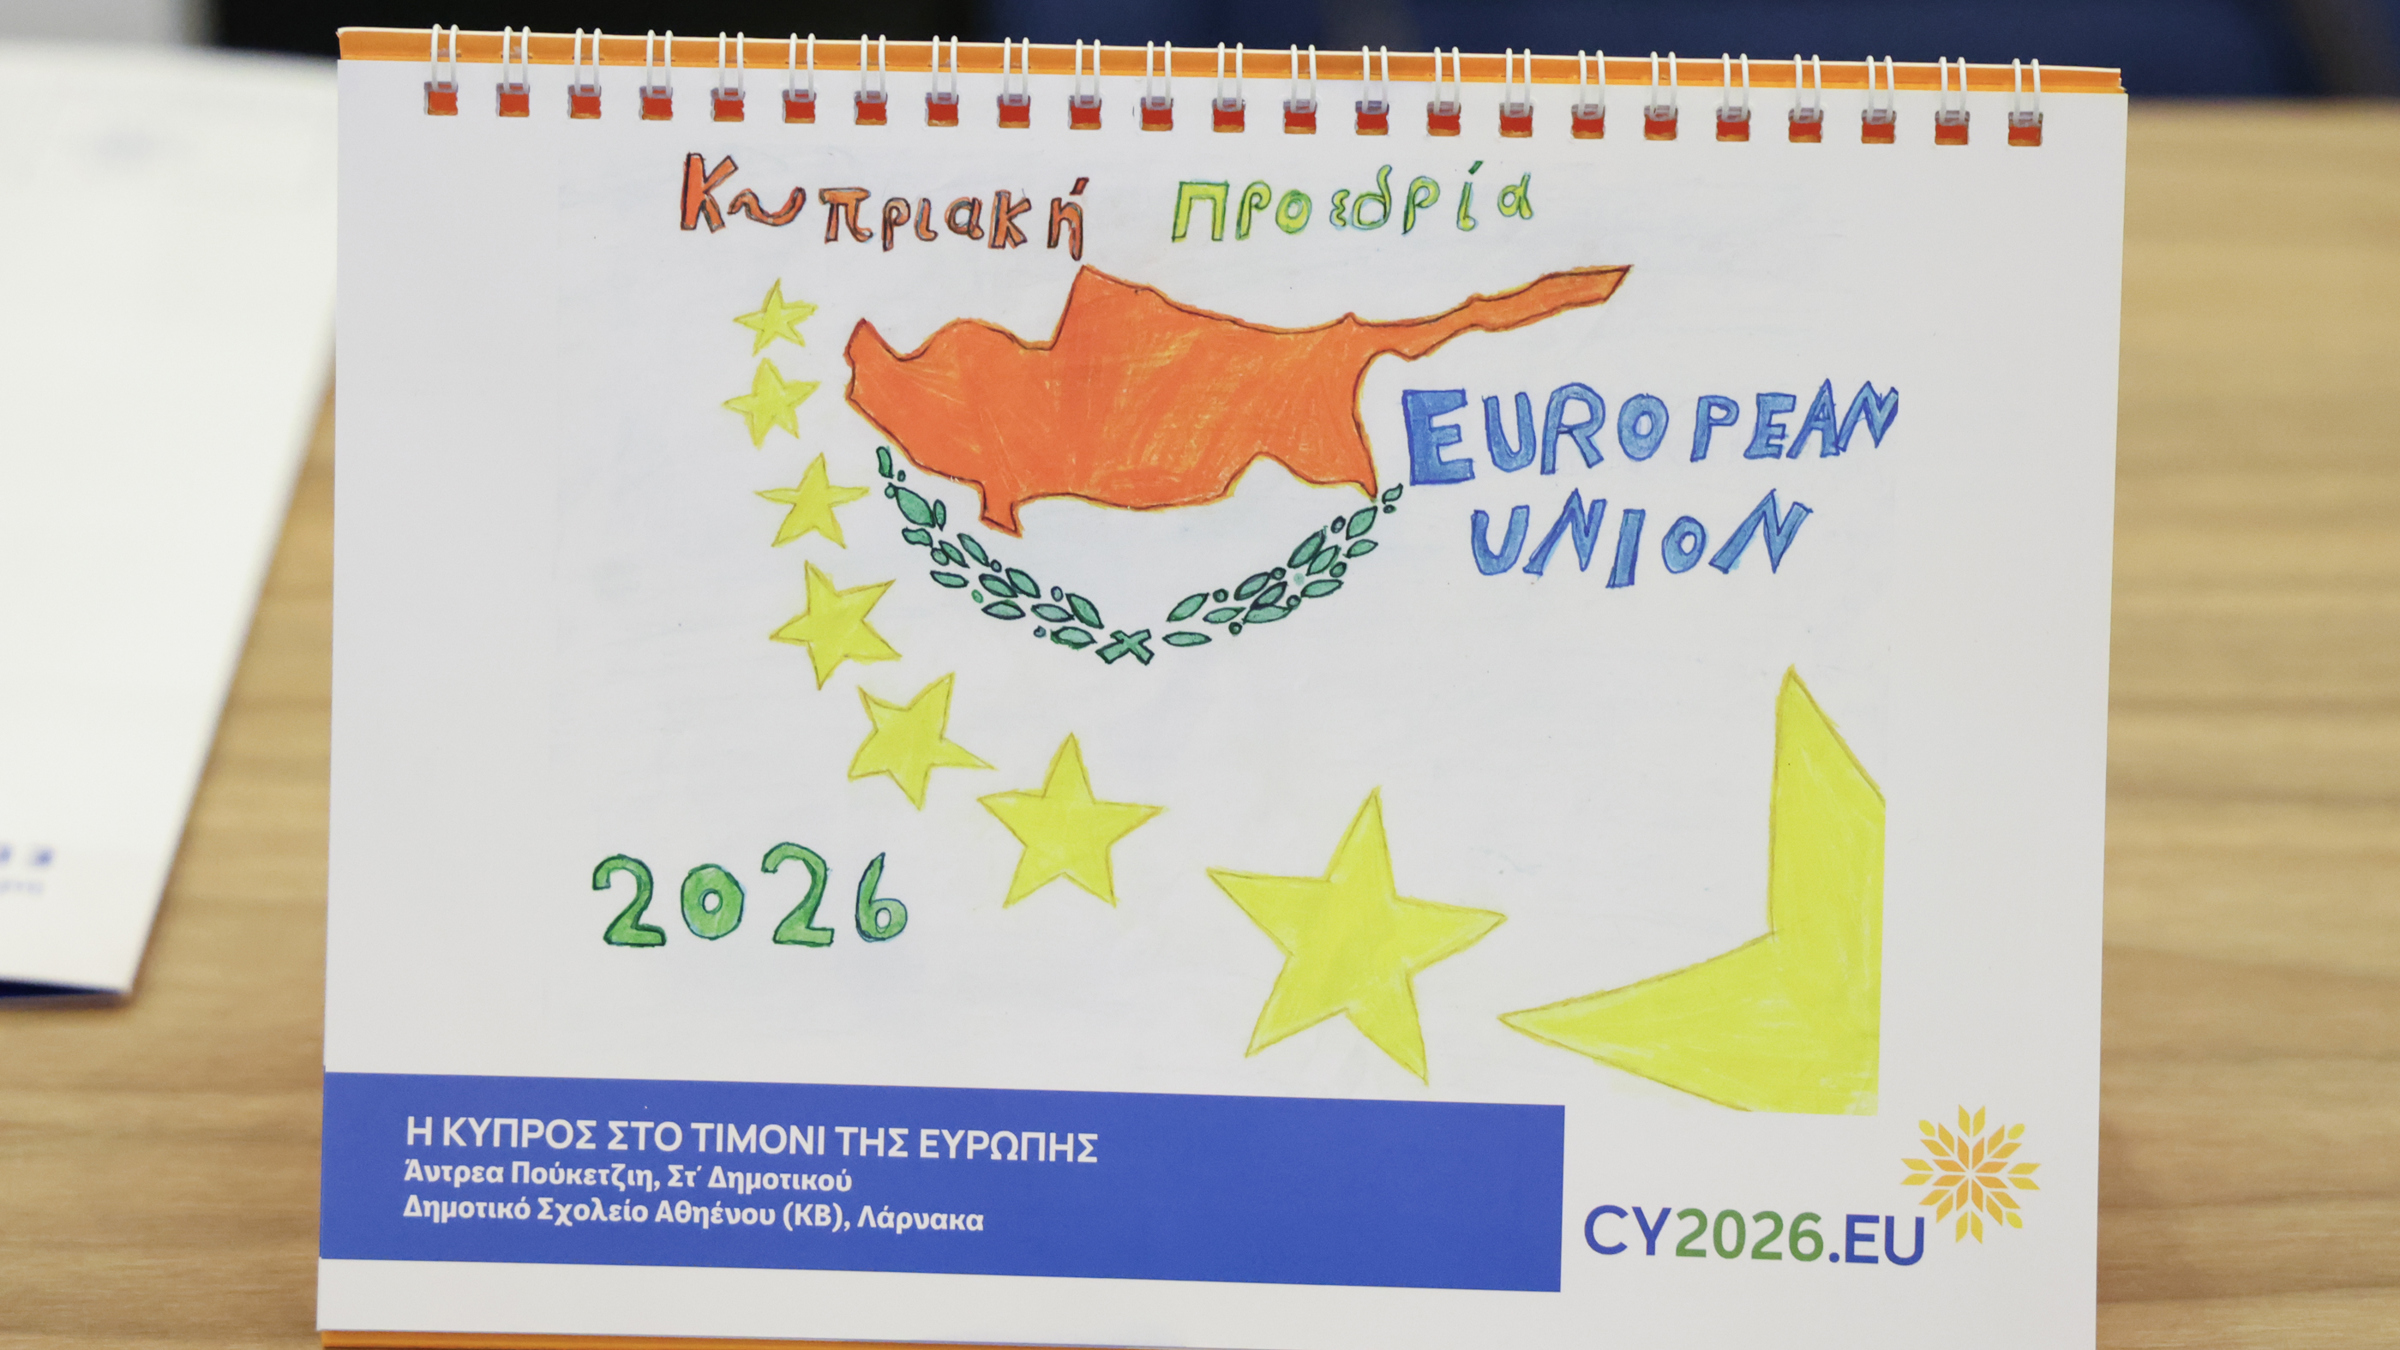 Κυπριακή Προεδρία
EUROPEAN
UNION
2026
Η ΚΥΠΡΟΣ ΣΤΟ ΤΙΜΟΝΙ ΤΗΣ ΕΥΡΩΠΗΣ
Άντρεα Πούκετζιη, Στ΄ Δημοτικού
Δημοτικό Σχολείο Αθηένου (ΚΒ), Λάρνακα
CY2026.EU